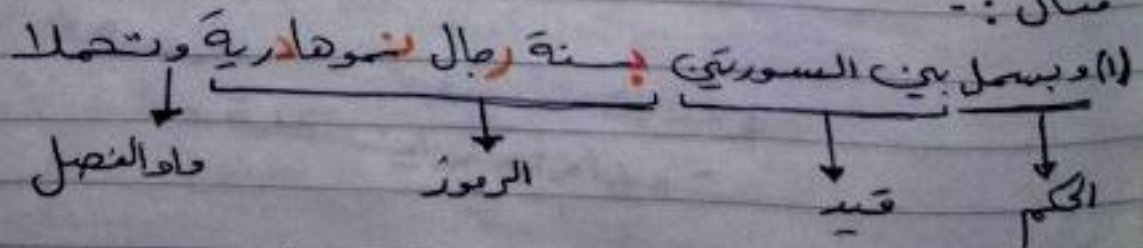 مثال :-
(١) وبسمل بين السورتين بسنة رجال نموها درية وتحملا
الحكم قيد الرموز واو الفصل